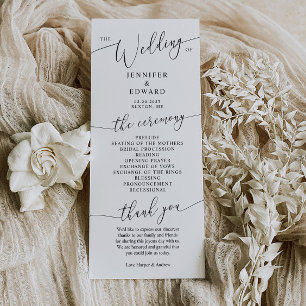 THE Wedding OF
JENNIFER
&
EDWARD
the ceremony
PRELUDE
SEATING OF THE MOTHERS
BRIDAL PROCESSION
READING
OPENING PRAYER
EXCHANGE OF VOWS
EXCHANGE OF THE RINGS
BLESSING
PRONOUNCEMENT
RECESSIONAL
thank you
We'd like to express our sincerest
thanks to our family and friends
for sharing this joyous day with us.
We are honored and grateful that
you could join us today.
Love Harper & Andrew